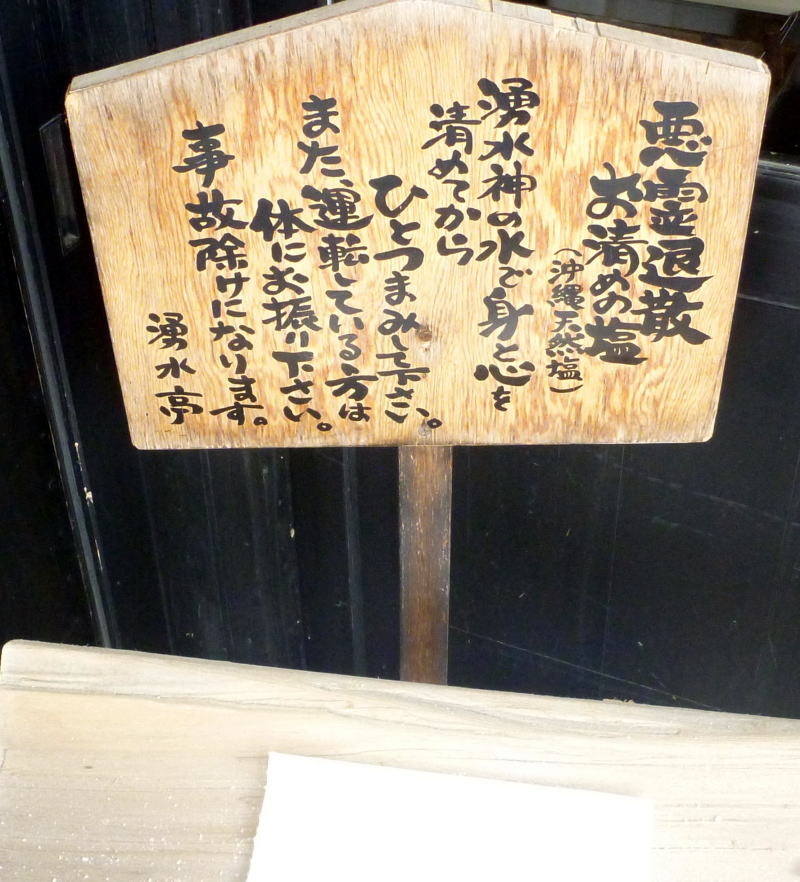 悪霊退散
お清めの塩
(沖縄天然塩)
湧水神の水で身と心を
清めてから
ひとつまみして下さい。
また、運転している方は
体にお振り下さい。
事故除けになります。
湧水亭